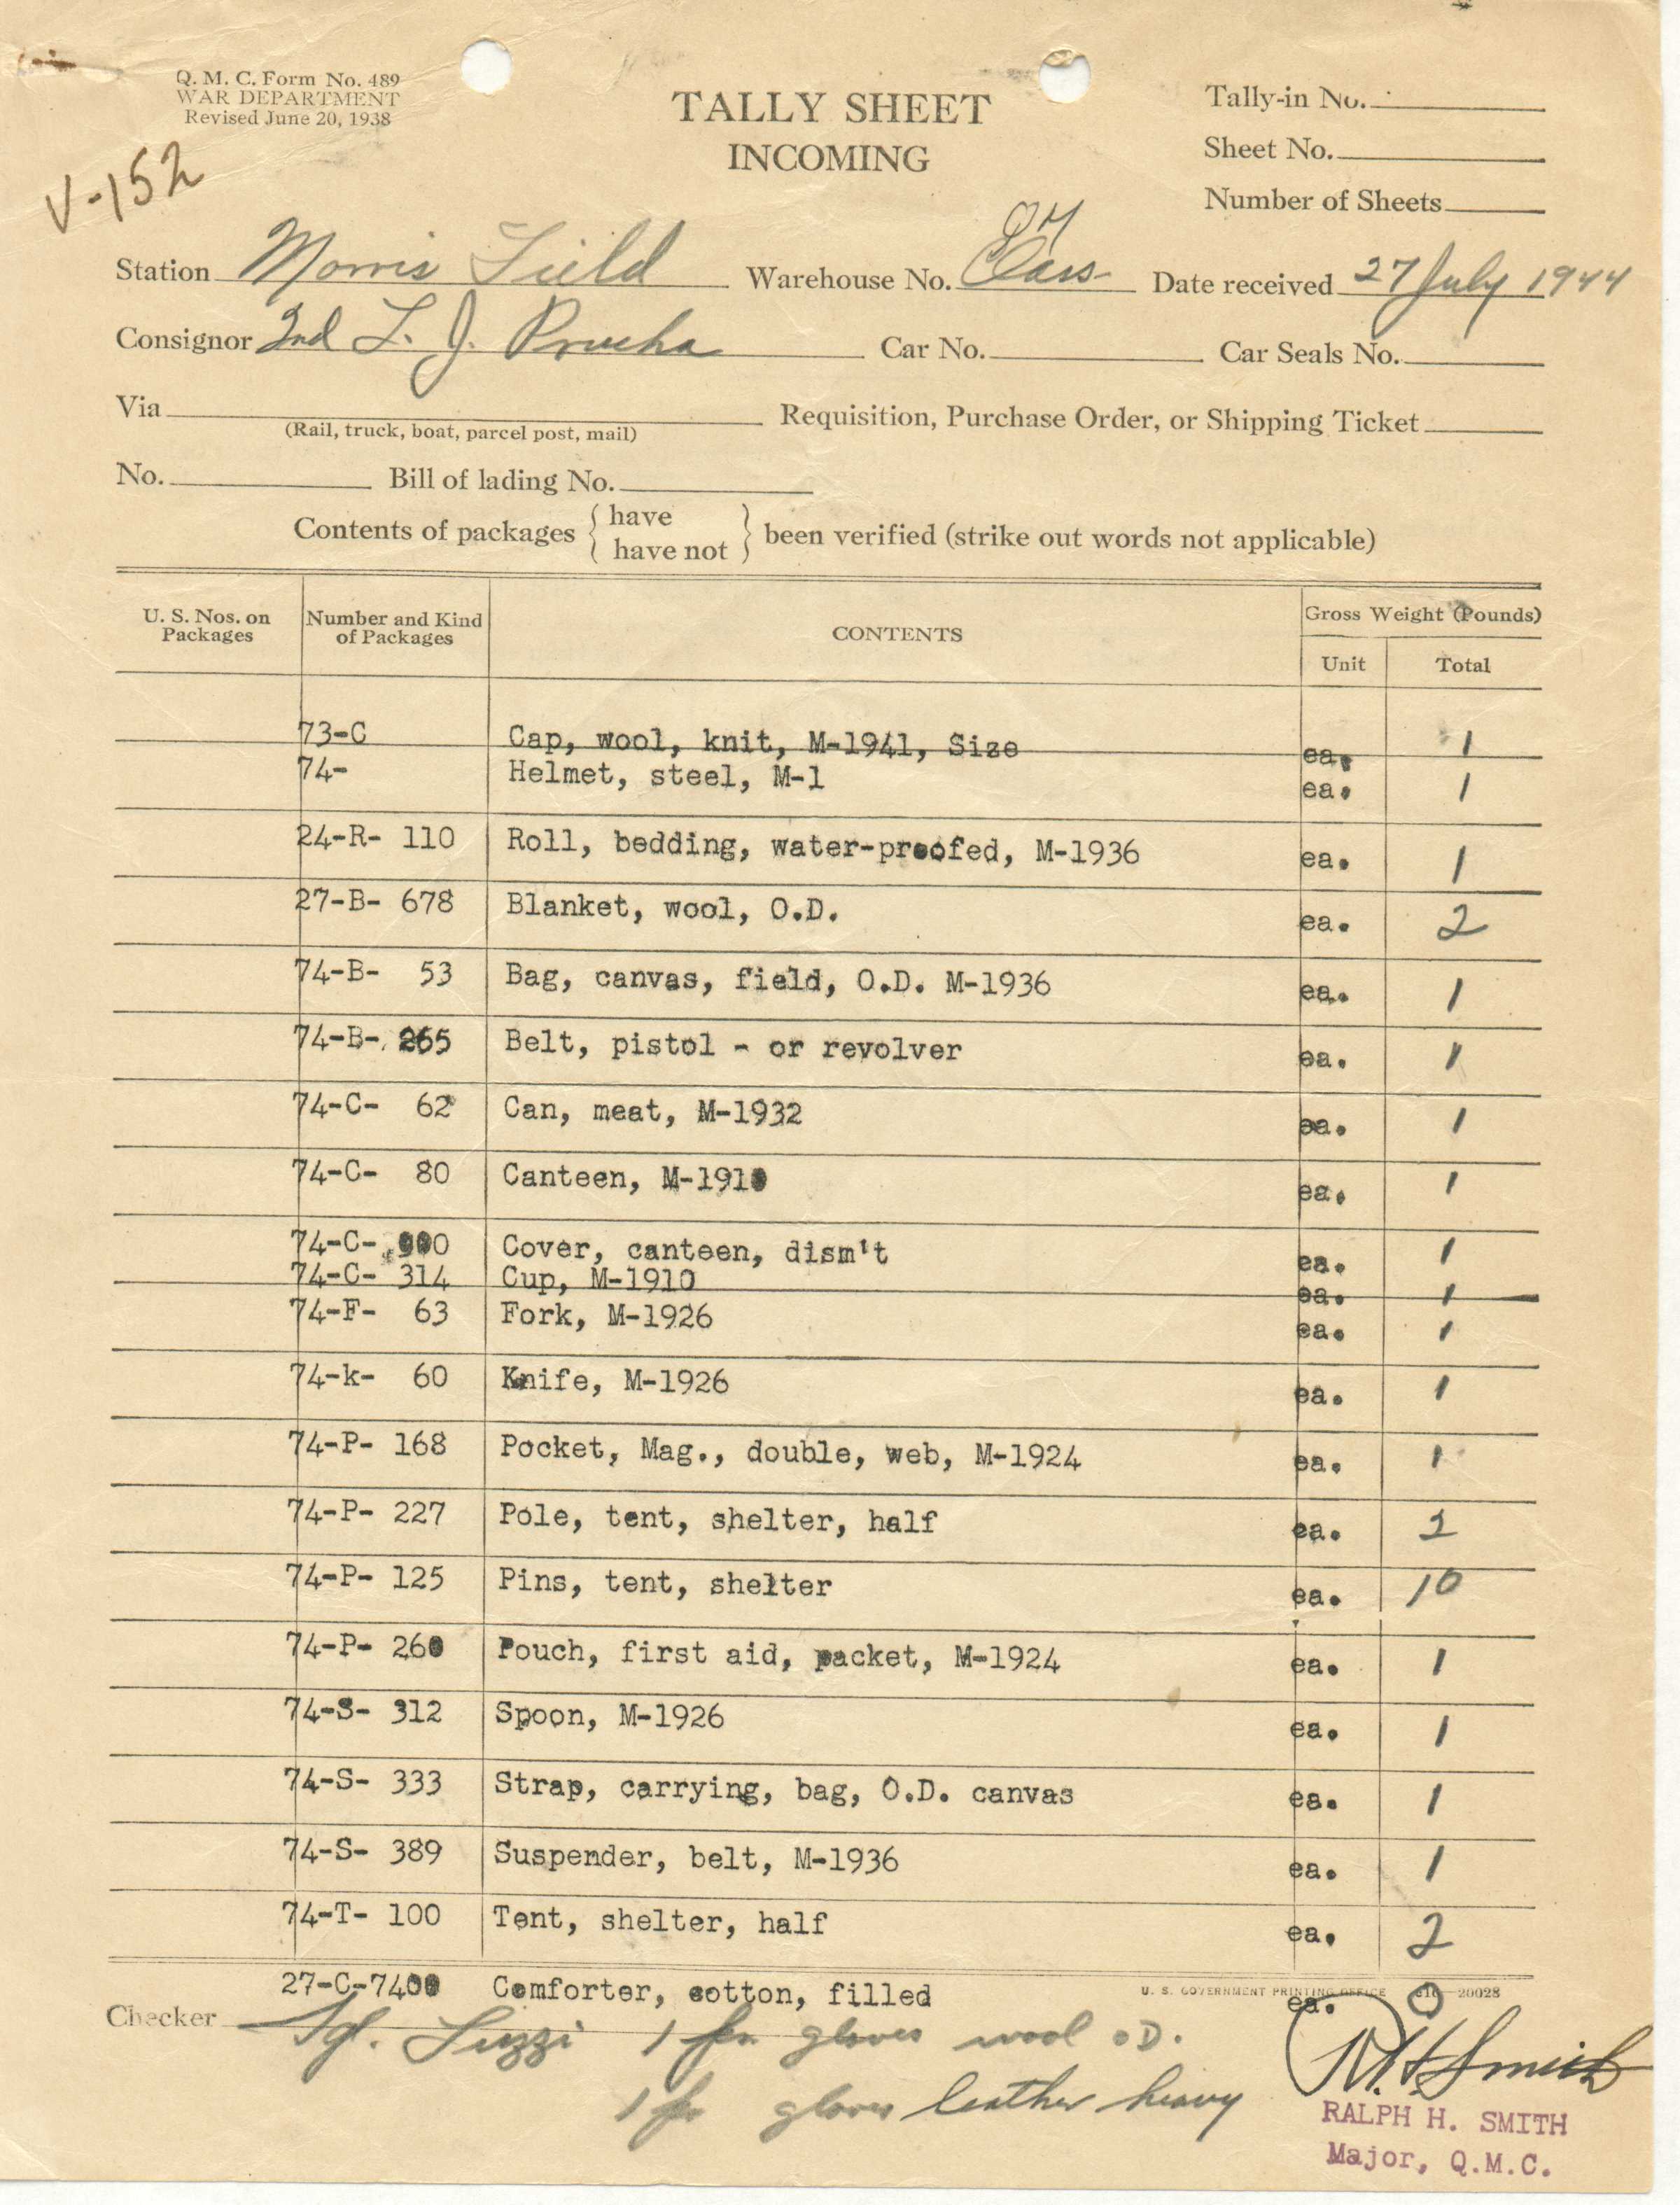 Q. M. C. Form No. 489
WAR DEPARTMENT
Revised June 20, 1938
V-152
TALLY SHEET
INCOMING
Tally-in No.
Sheet No.
Number of Sheets
Station Morris Field Warehouse No. QM Class Date received 27 July 1944
Consignor 2nd L. J. Prucha Car No. Car Seals No.
Via Requisition, Purchase Order, or Shipping Ticket
(Rail, truck, boat, parcel post, mail)
No. Bill of lading No.
Contents of packages { have have not } been verified (strike out words not applicable)
U. S. Nos. on Packages Number and Kind of Packages CONTENTS Gross Weight (Pounds)
Unit Total
73-C Cap, wool, knit, M-1941, Size ea. 1
74- Helmet, steel, M-1 ea. 1
24-R- 110 Roll, bedding, water-proofed, M-1936 ea. 1
27-B- 678 Blanket, wool, O.D. ea. 2
74-B- 53 Bag, canvas, field, O.D. M-1936 ea. 1
74-B- 265 Belt, pistol - or revolver ea. 1
74-C- 62 Can, meat, M-1932 ea. 1
74-C- 80 Canteen, M-1910 ea. 1
74-C- Cover, canteen, dism't ea. 1
74-C- 314 Cup, M-1910 ea. 1
74-F- 63 Fork, M-1926 ea. 1
74-k- 60 Knife, M-1926 ea. 1
74-P- 168 Pocket, Mag., double, web, M-1924 ea. 1
74-P- 227 Pole, tent, shelter, half ea. 2
74-P- 125 Pins, tent, shelter ea. 10
74-P- 260 Pouch, first aid, packet, M-1924 ea. 1
74-S- 312 Spoon, M-1926 ea. 1
74-S- 333 Strap, carrying, bag, O.D. canvas ea. 1
74-S- 389 Suspender, belt, M-1936 ea. 1
74-T- 100 Tent, shelter, half ea. 2
27-C-7400 Comforter, cotton, filled ea. 0
U. S. GOVERNMENT PRINTING OFFICE 16—20028
Checker Sgt. Luzzi 1 pr. gloves wool OD.
1 pr gloves leather heavy
R. H. Smith
RALPH H. SMITH
Major, Q.M.C.